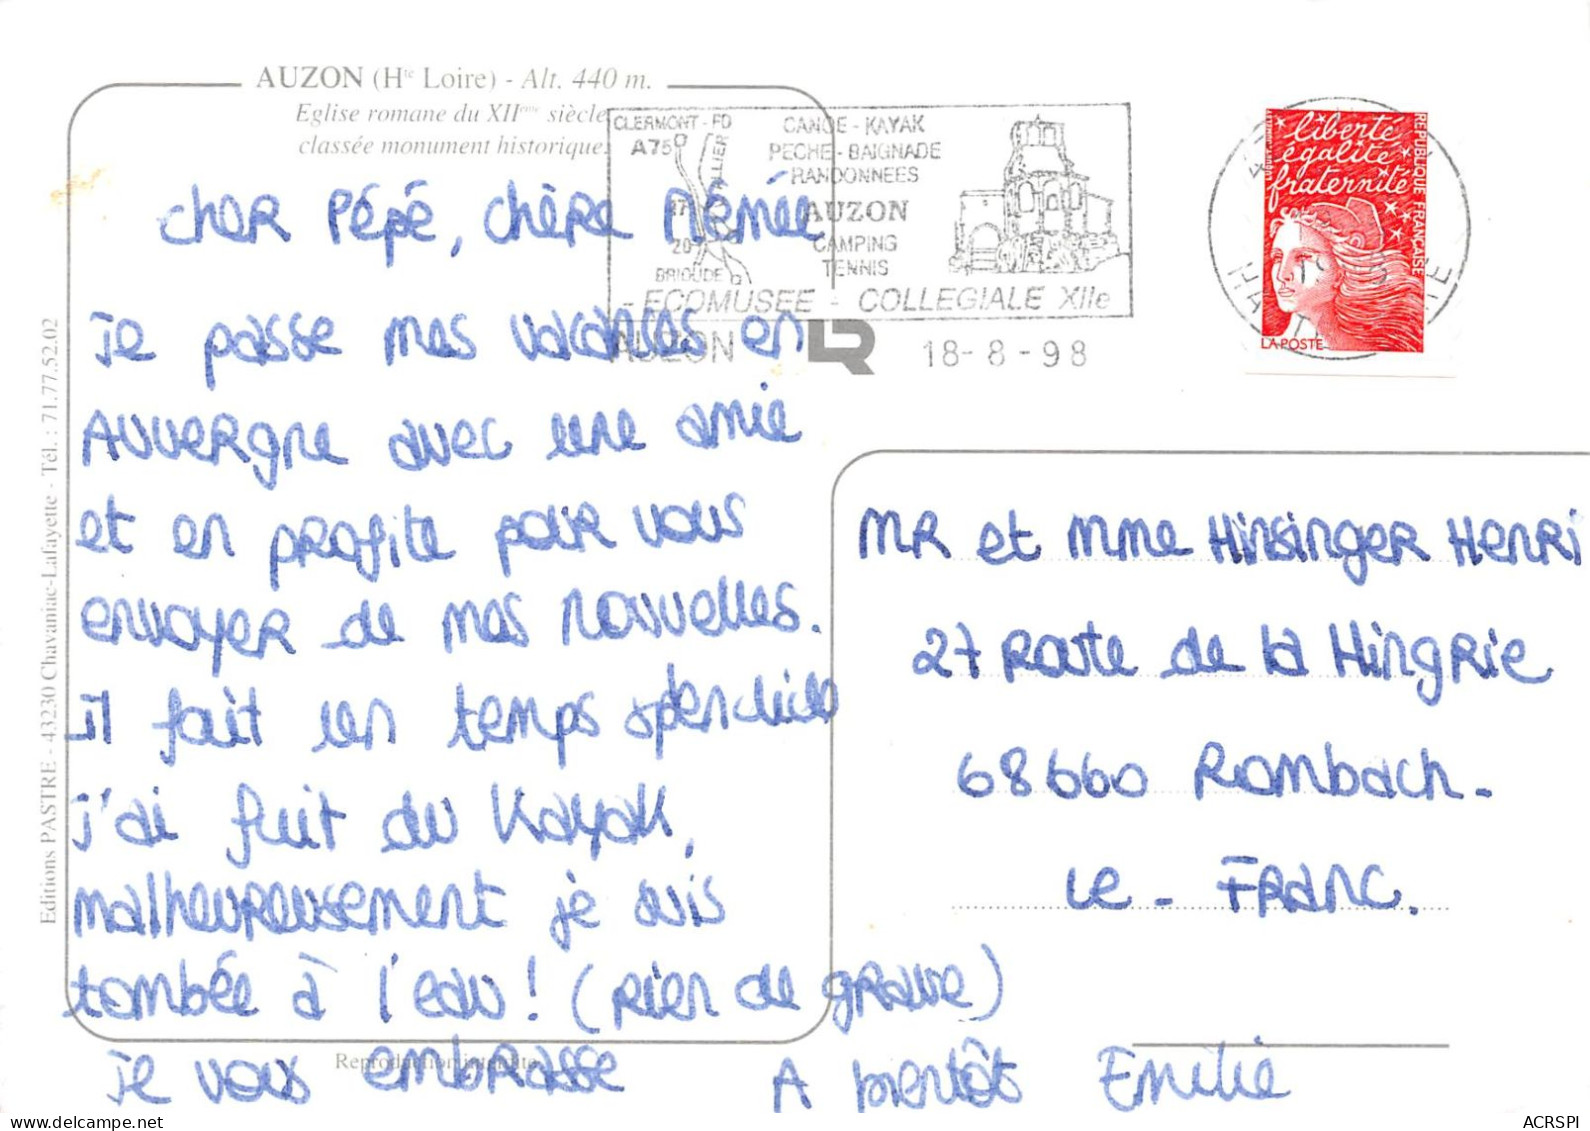 AUZON (Hte Loire) - Alt. 440 m.
Eglise romane du XIIème siècle
classée monument historique.
CLERMONT-FD
A75
ALLIER
BRIOUDE
CANOE - KAYAK
PECHE - BAIGNADE
RANDONNEES
AUZON
CAMPING
TENNIS
- ECOMUSEE - COLLEGIALE XIIe
AUZON
18-8-98
liberté
égalité
fraternité
REPUBLIQUE FRANÇAISE
LA POSTE
Cher Pépé, chère Mémée
Je passe mes vacances en
Auvergne avec une amie
et en profite pour vous
envoyer de mes nouvelles.
il fait un temps splendide
J'ai fait du Kayak,
malheureusement je suis
tombée à l'eau! (rien de grave)
Je vous embrasse
A bientôt Emilie
MR et Mme Hinsinger Henri
27 Route de la Hingrie
68660 Rombach-
Le - Franc.
Editions PASTRE - 43230 Chavaniac-Lafayette - Tél. : 71.77.52.02
Reproduction interdite
delcampe.net
ACRSPI